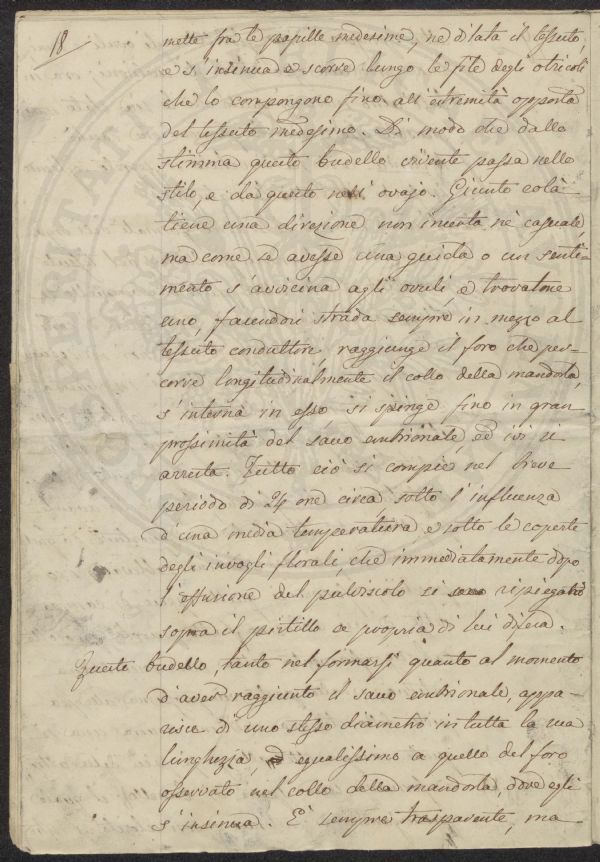 18
mette fra le papille medesime, ne dilata il tessuto,
e s'insinua e scorre lungo le file degli otricoli
che lo compongono fino all'estremità opposta
del tessuto medesimo. Di modo che dallo
stimma questo budello vivente passa nello
stilo, e da questo nell'ovajo. Giunto colà
tiene una direzione non incerta nè casuale,
ma come se avesse una guida o un senti-
mento s'avvicina agli ovuli, e trovatone
uno, facendosi strada sempre in mezzo al
tessuto conduttore, raggiunge il foro che per-
corre longitudinalmente il collo della mandorla,
s'interna in esso, si spinge fino in gran
prossimità del sacco embrionale, ed ivi si
arresta. Tutto ciò si compie nel breve
periodo di 24 ore circa, sotto l'influenza
d'una media temperatura e sotto le coperte
degli invogli florali, che immediatamente dopo
l'effusione del pulviscolo si ripiegano
sopra il pistillo a propria di lui difesa.
Questo budello, tanto nel formarsi quanto al momento
d'aver raggiunto il sacco embrionale, appa-
risce di uno stesso diametro in tutta la sua
lunghezza, ed egualissimo a quello del foro
osservato nel collo della mandorla, dove egli
s'insinua. È sempre trasparente, ma